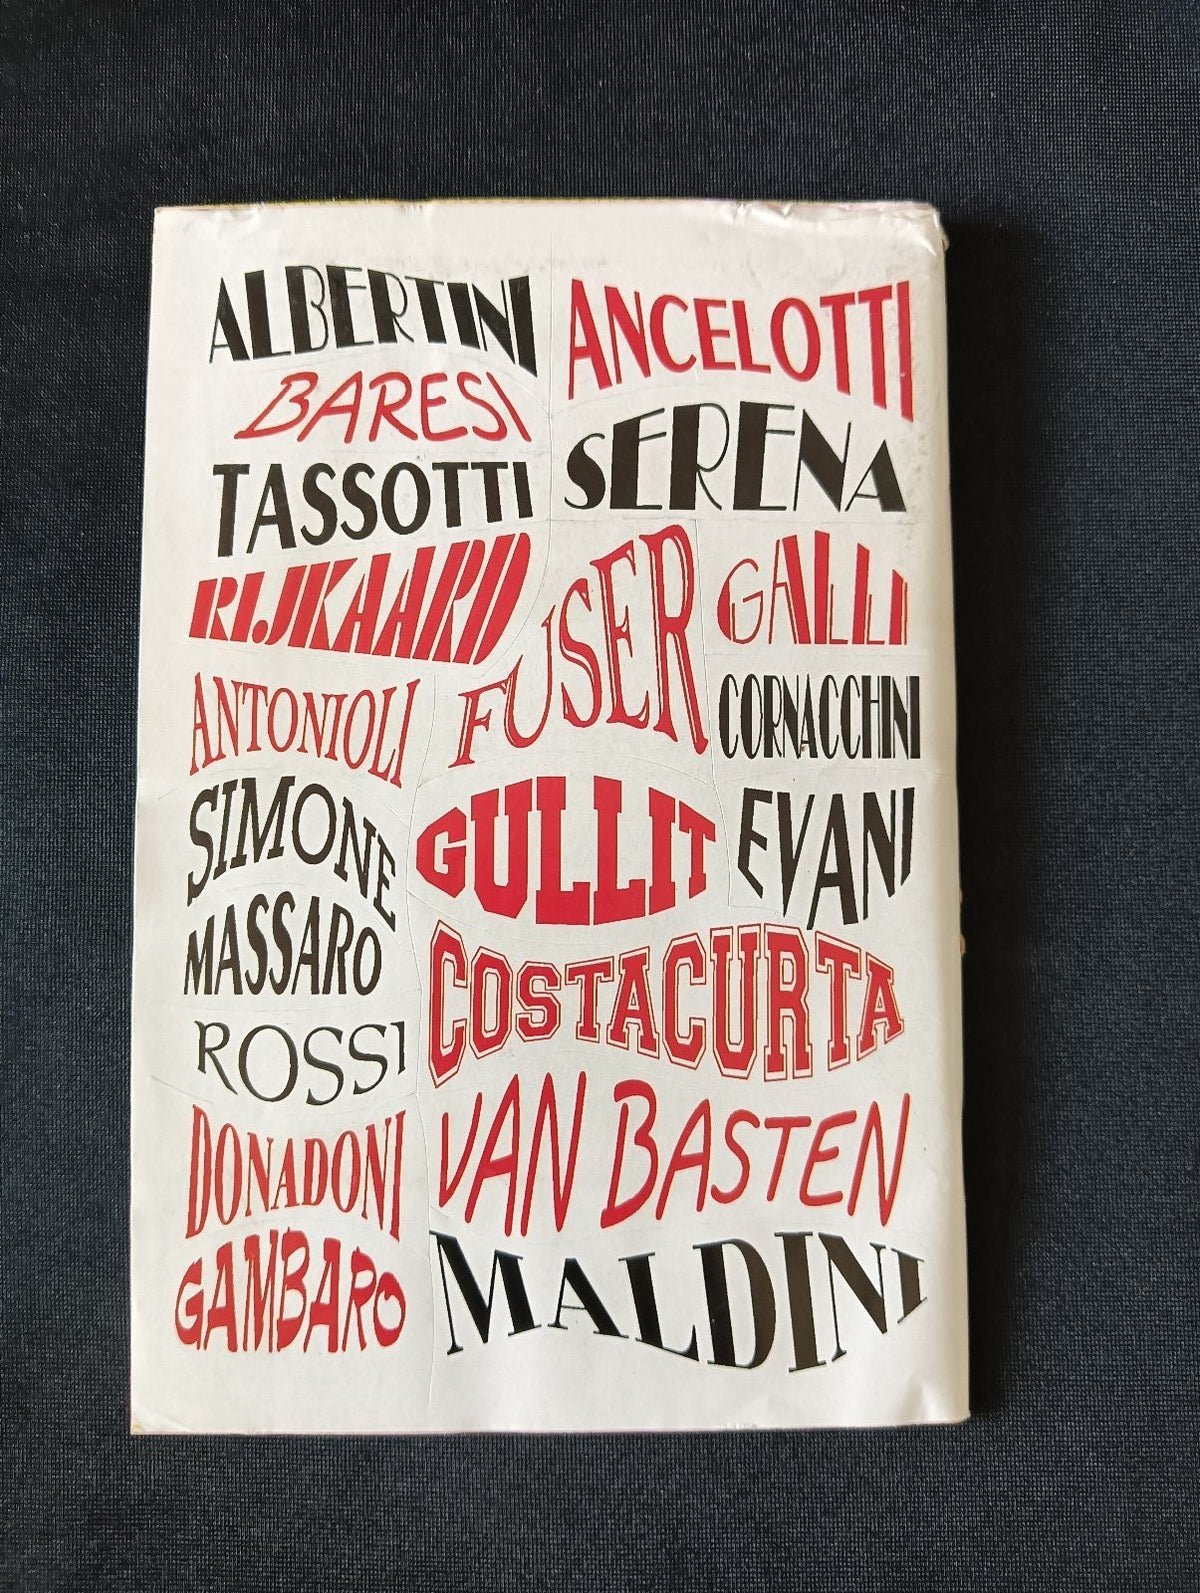 ALBERTINI
ANCELOTTI
BARESI
SERENA
TASSOTTI
RIJKAARD
FUSER
GALLI
ANTONIOLI
CORNACCHINI
SIMONE
GULLIT
EVANI
MASSARO
COSTACURTA
ROSSI
VAN BASTEN
DONADONI
GAMBARO
MALDINI